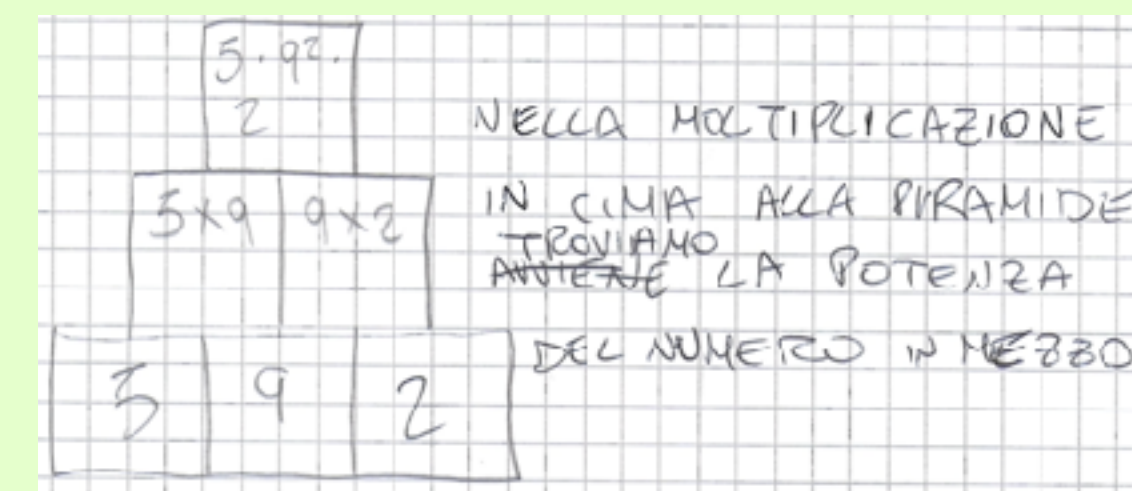 5·9²·
2
NELLA MOLTIPLICAZIONE
5×9 9×2
IN CIMA ALLA PIRAMIDE
TROVIAMO
AVVIENE LA POTENZA
DEL NUMERO IN MEZZO
5 9 2